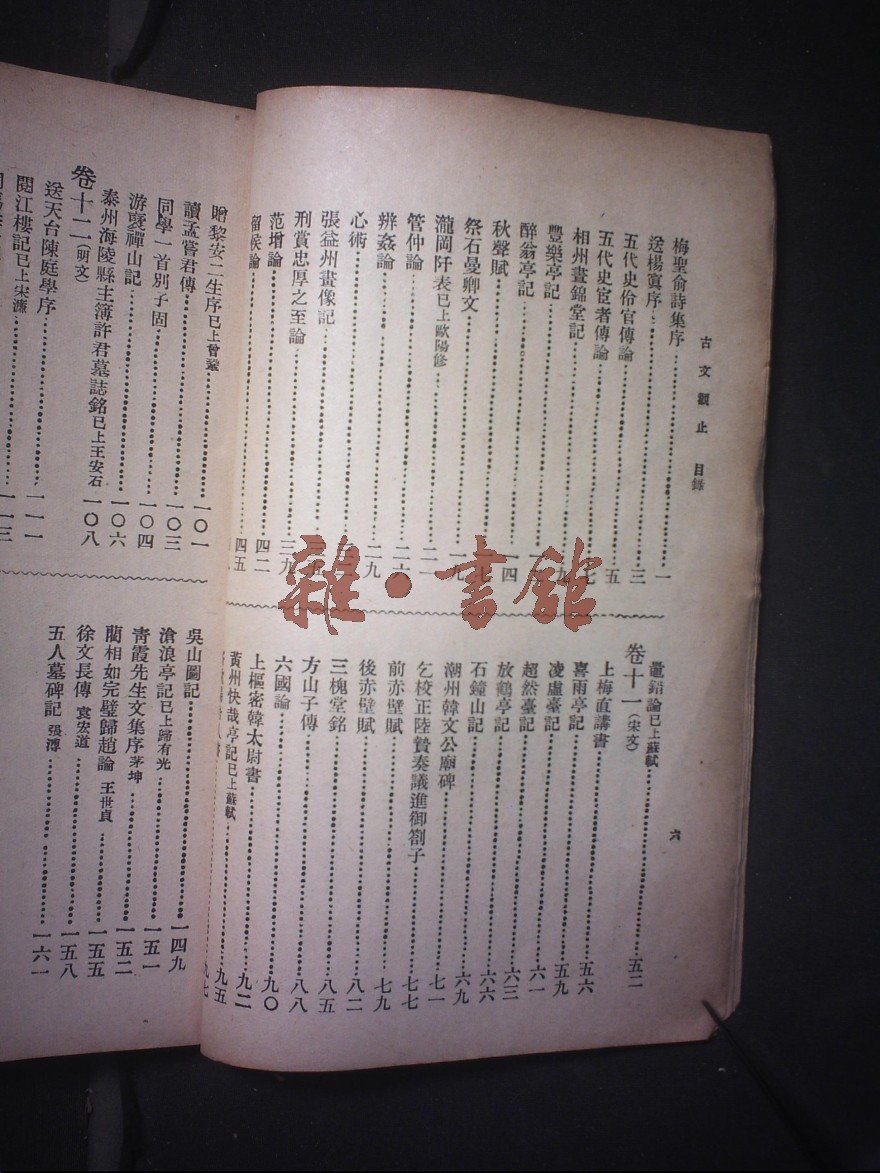 古文觀止 目錄
六
梅聖俞詩集序 一
送楊寘序 三
五代史伶官傳論 五
五代史宦者傳論 七
相州晝錦堂記
豐樂亭記
醉翁亭記
秋聲賦 一四
祭石曼卿文
瀧岡阡表已上歐陽修 一九
管仲論 二一
辨姦論 二六
心術 二九
張益州畫像記
刑賞忠厚之至論
范增論 三九
留侯論 四二
四五
鼂錯論已上蘇軾 五二
卷十一（宋文）
上梅直講書 五六
喜雨亭記 五九
凌虛臺記 六一
超然臺記 六三
放鶴亭記 六六
石鐘山記 六九
潮州韓文公廟碑 七一
乞校正陸贄奏議進御劄子 七七
前赤壁賦 七九
後赤壁賦 八二
三槐堂銘 八五
方山子傳 八八
六國論 九〇
上樞密韓太尉書 九二
黃州快哉亭記已上蘇轍 九五
九七
贈黎安二生序已上曾鞏 一〇一
讀孟嘗君傳 一〇三
同學一首別子固 一〇四
游襃禪山記 一〇六
泰州海陵縣主簿許君墓誌銘已上王安石 一〇八
卷十二（明文）
送天台陳庭學序 一一一
閱江樓記已上宋濂 一一三
吳山圖記 一四九
滄浪亭記已上歸有光 一五一
青霞先生文集序 茅坤 一五二
藺相如完璧歸趙論 王世貞 一五五
徐文長傳 袁宏道 一五八
五人墓碑記 張溥 一六一
雜·書館